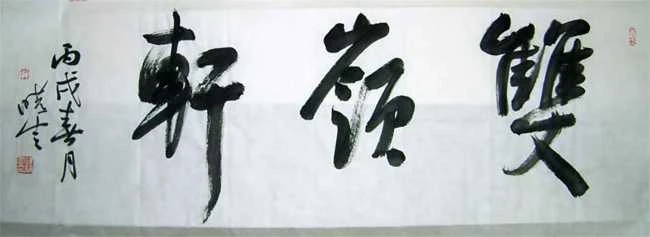 雙嶺軒
丙戌春月
曉雲